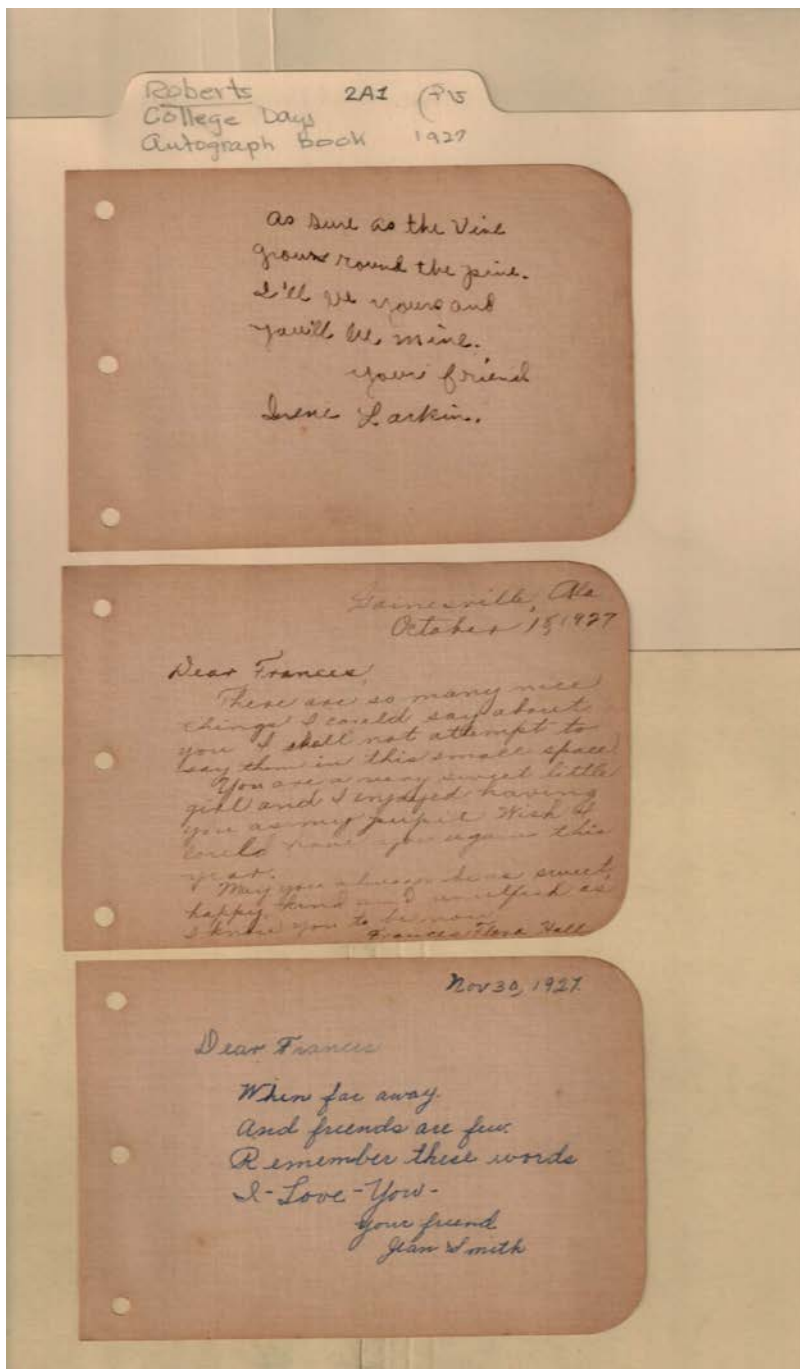 Roberts 2A1
College Days
Autograph Book 1927
As sure as the Vine
grows 'round the pine.
I'll be yours and
you'll be mine.
your friend
Irene Larkin.
Gainesville, Ala
October 15, 1927
Dear Frances,
There are so many nice
things I could say about
you I shall not attempt to
say them in this small space.
You are a very sweet little
girl and I enjoyed having
you as my pupil. Wish I
could have you again this
year.
May you always be as sweet,
happy, kind and unselfish as
I know you to be now.
Frances Flora Hall
Nov 30, 1927.
Dear Frances
When far away.
And friends are few.
Remember these words
I-Love-You-
your friend
Jean Smith